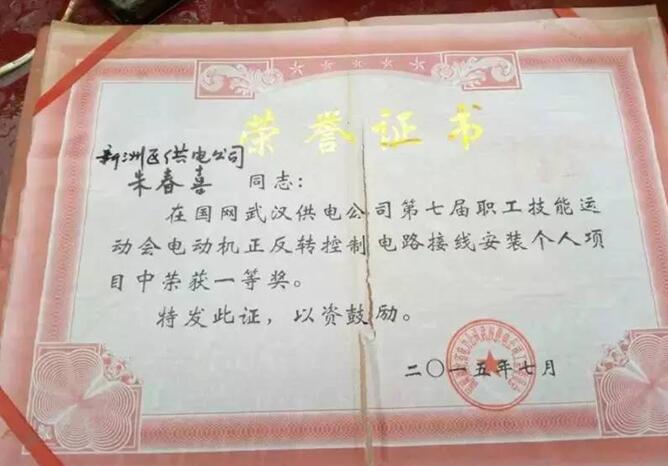 荣誉证书
新洲区供电公司
朱春喜 同志：
在国网武汉供电公司第七届职工技能运
动会电动机正反转控制电路接线安装个人项
目中荣获一等奖。
特发此证，以资鼓励。
二〇一五年七月